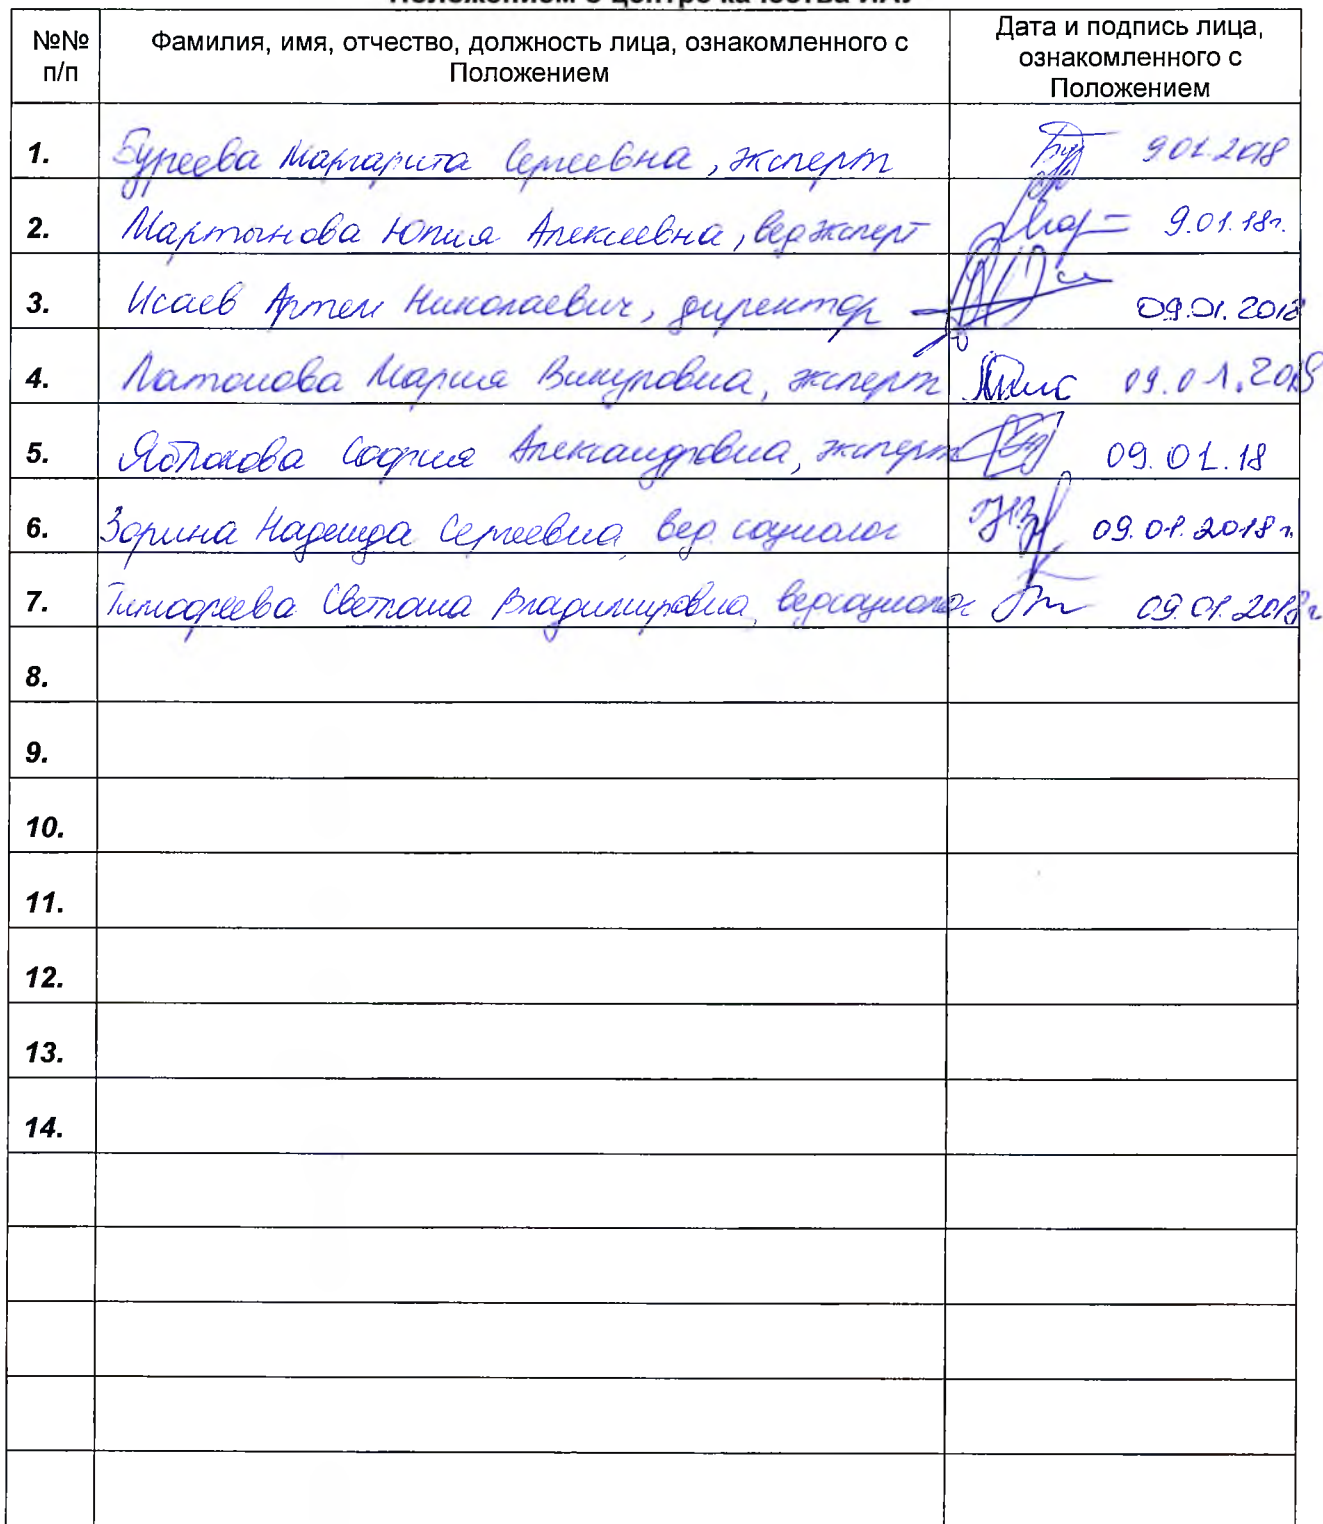 Положением о центре качества
№№ п/п
Фамилия, имя, отчество, должность лица, ознакомленного с
Положением
Дата и подпись лица,
ознакомленного с
Положением
1. Буреева Маргарита Сергеевна, эксперт 9.01.2018
2. Мартынова Юлия Алексеевна, вед эксперт 9.01.18г.
3. Исаев Артем Николаевич, директор 09.01.2018
4. Латонова Мария Викуровна, эксперт 09.01.2018
5. Яблокова София Александровна, эксперт 09.01.18
6. Зорина Надежда Сергеевна, вед социолог 09.01.2018 г.
7. Тимофеева Светлана Владимировна, вед социолог 09.01.2018г
8.
9.
10.
11.
12.
13.
14.